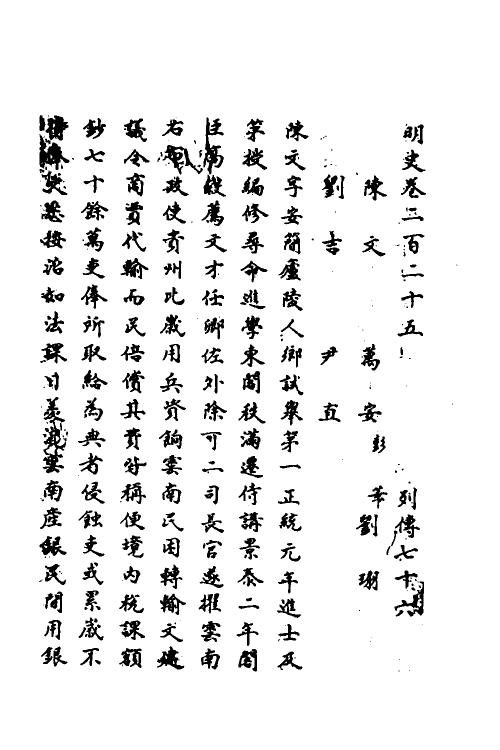 明史卷二百二十五 列傳七十六
陳文 萬安 彭華 劉珝
劉吉 尹直
陳文字安簡廬陵人鄉試舉第一正統元年進士及
第授編修尋命進學東閣秩滿遷侍講景泰二年閣
臣高穀薦文才任卿佐外除可二司長官遂擢雲南
右布政使貴州比歲用兵資餉雲南民困轉輸文
議令商賈代輸而民倍償其費好稱便境內稅課額
鈔七十餘萬吏俸所取給為典者侵蝕吏或累歲不
得俸文悉按治如法課日羨雲南產銀民間用銀